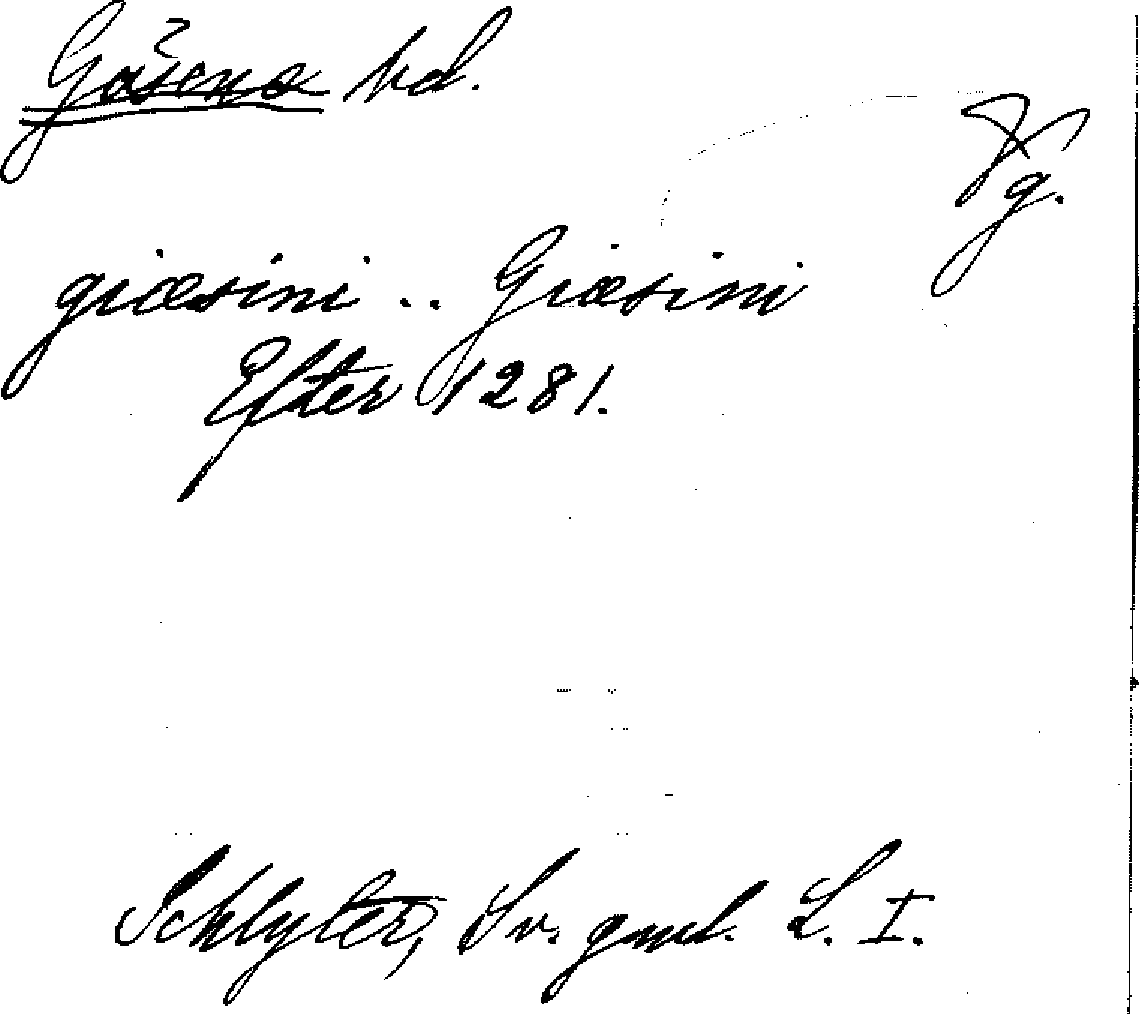 Gäsene hd.
Vg.
giæsini .. Giæsini
Efter 1281.
Schlyter, Sv. gml. L. I.